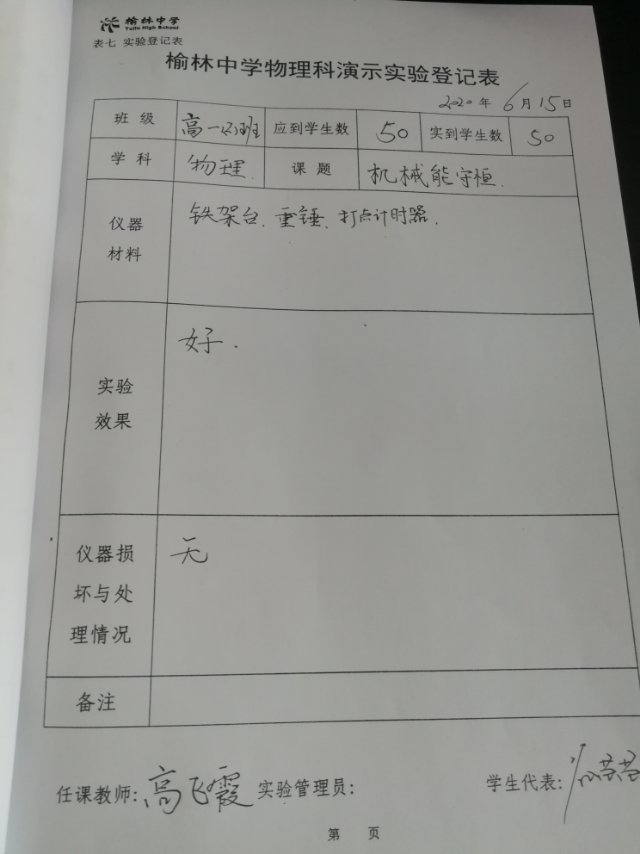 榆林中学
Yulin High School
表七 实验登记表
榆林中学物理科演示实验登记表
2020年6月15日
班 级 高一 班 应到学生数 50 实到学生数 50
学 科 物理 课 题 机械能守恒.
仪器材料 铁架台、重锤、打点计时器.
实验效果 好.
仪器损坏与处理情况 无
备注
任课教师: 高飞霞 实验管理员: 学生代表:
第 页